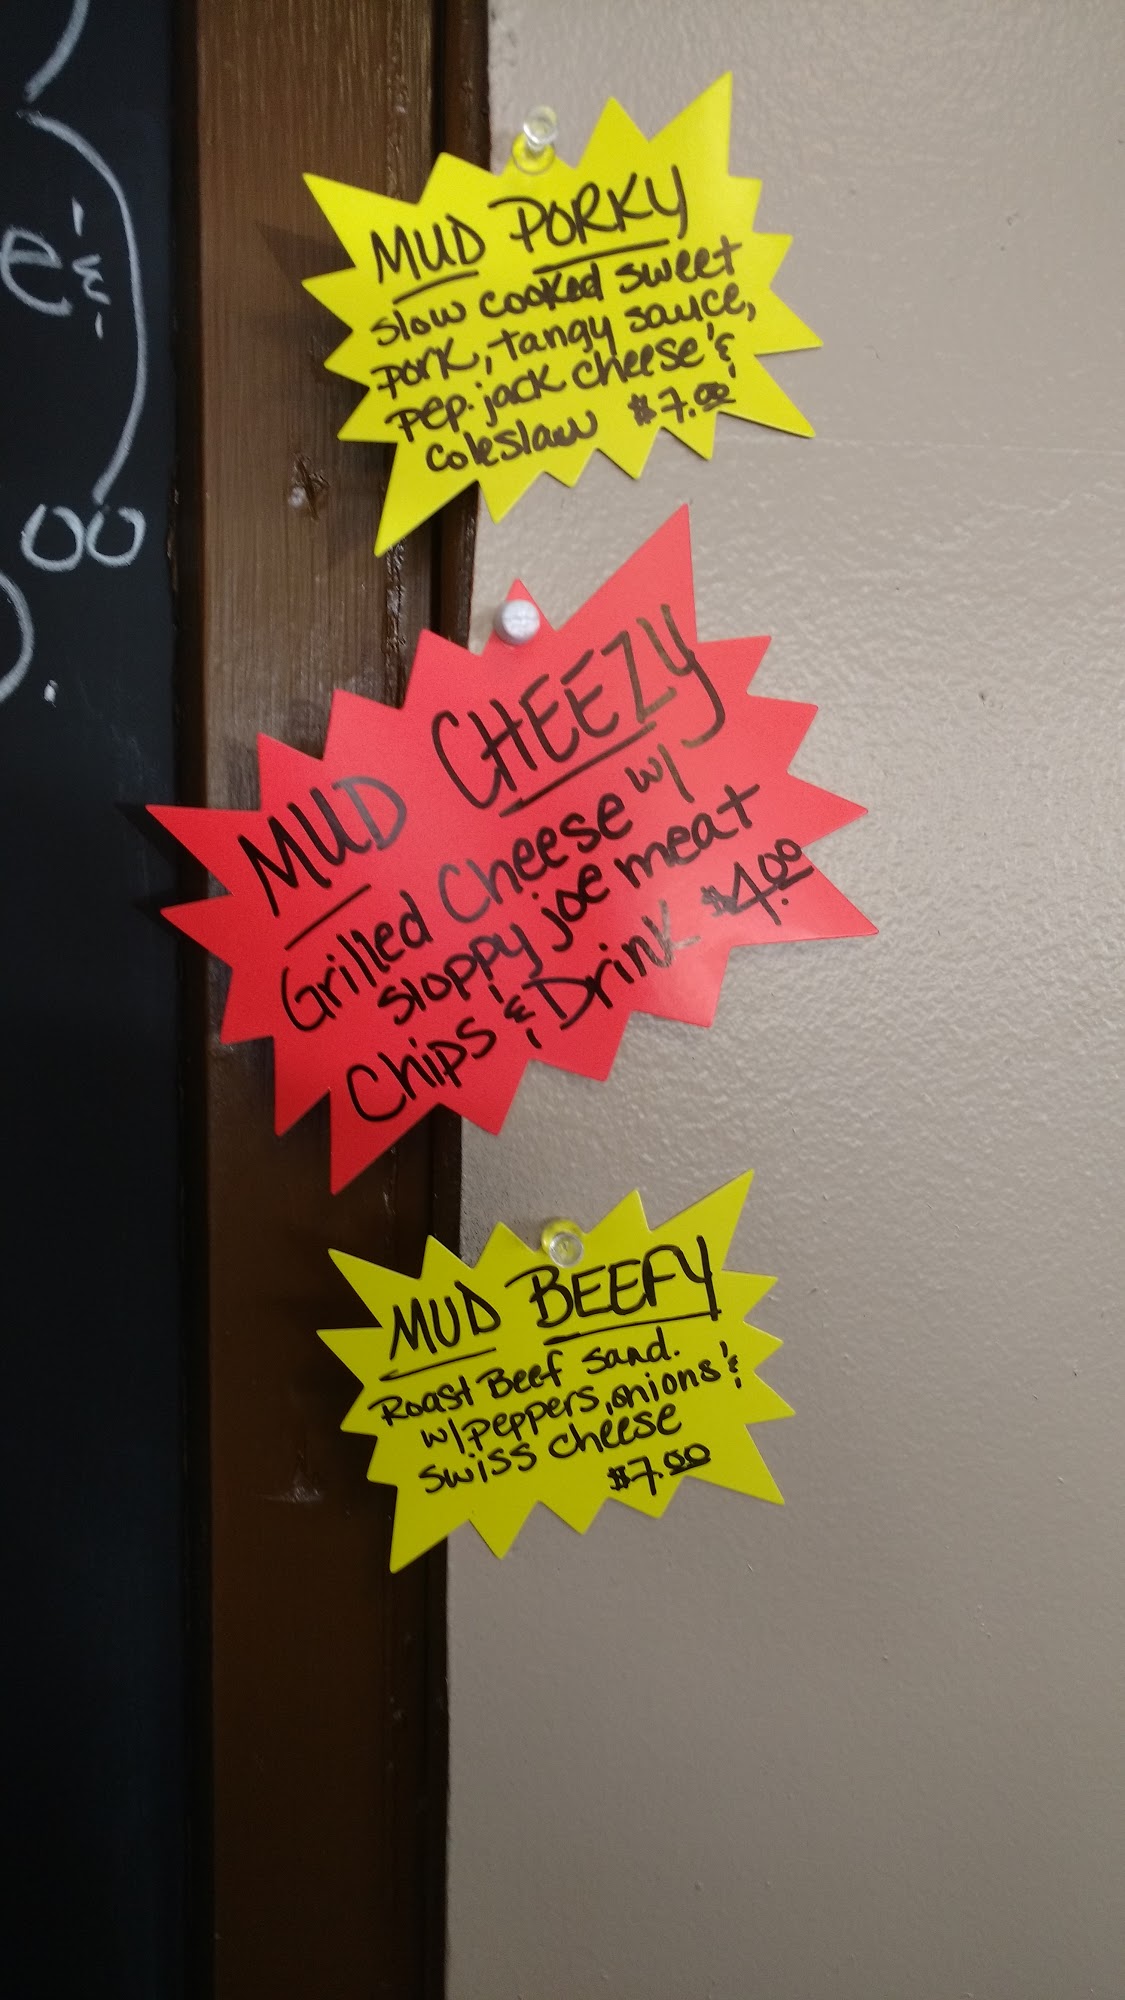 e &
00
MUD PORKY
slow cooked sweet
pork, tangy sauce,
pep. jack cheese &
coleslaw $7.00
MUD CHEEZY
Grilled Cheese w/
sloppy joe meat
Chips & Drink $4.00
MUD BEEFY
Roast Beef sand.
w/peppers, onions &
swiss cheese
$7.00